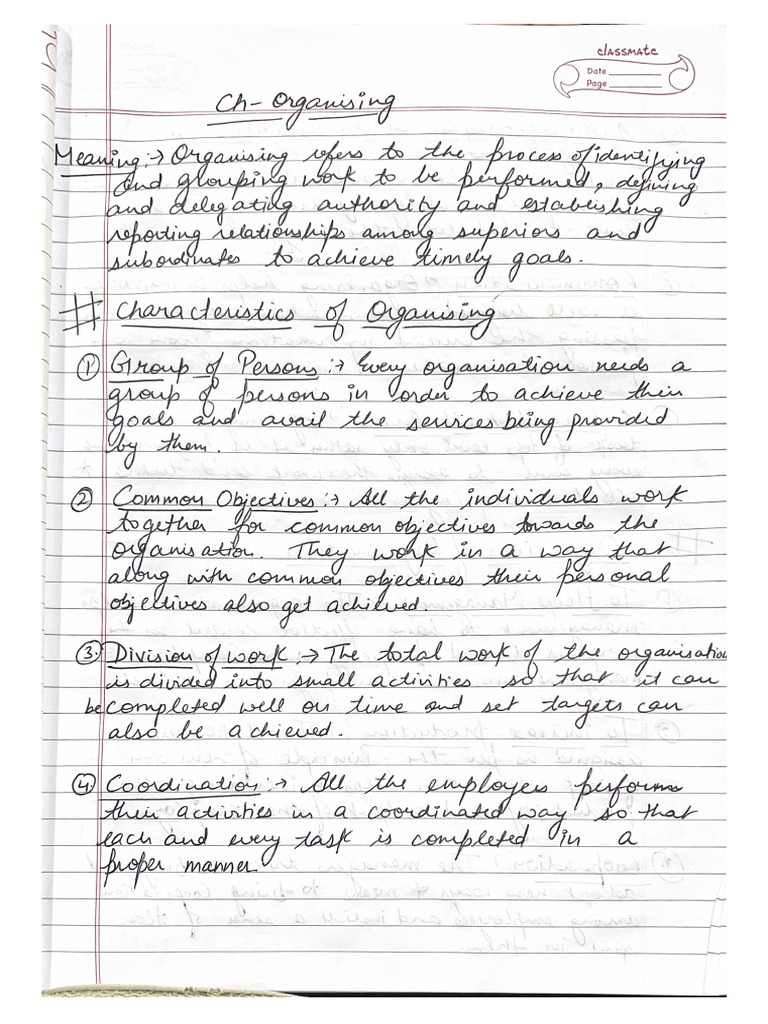 classmate
Date
Page
Ch- Organising
Meaning:→ Organising refers to the process of identifying
and grouping work to be performed, defining
and delegating authority and establishing
reporting relationships among superiors and
subordinates to achieve timely goals.
# Characteristics of Organising
① Group of Persons :→ Every organisation needs a
group of persons in order to achieve their
goals and avail the services being provided
by them.
② Common Objectives :→ All the individuals work
together for common objectives towards the
organisation. They work in a way that
along with common objectives their personal
objectives also get achieved.
③ Division of work :→ The total work of the organisation
is divided into small activities so that it can
be completed well on time and set targets can
also be achieved.
④ Coordination :→ All the employees perform
their activities in a coordinated way so that
each and every task is completed in a
proper manner.